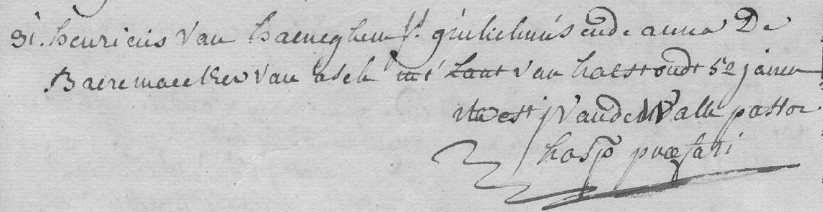 31. henricus van haeneghem fs. guilielmus ende anna De
Baeremaecker van asche int Lant van haest oudt 52 jaeren
ita est J vande Walle pastor
hosp præfati